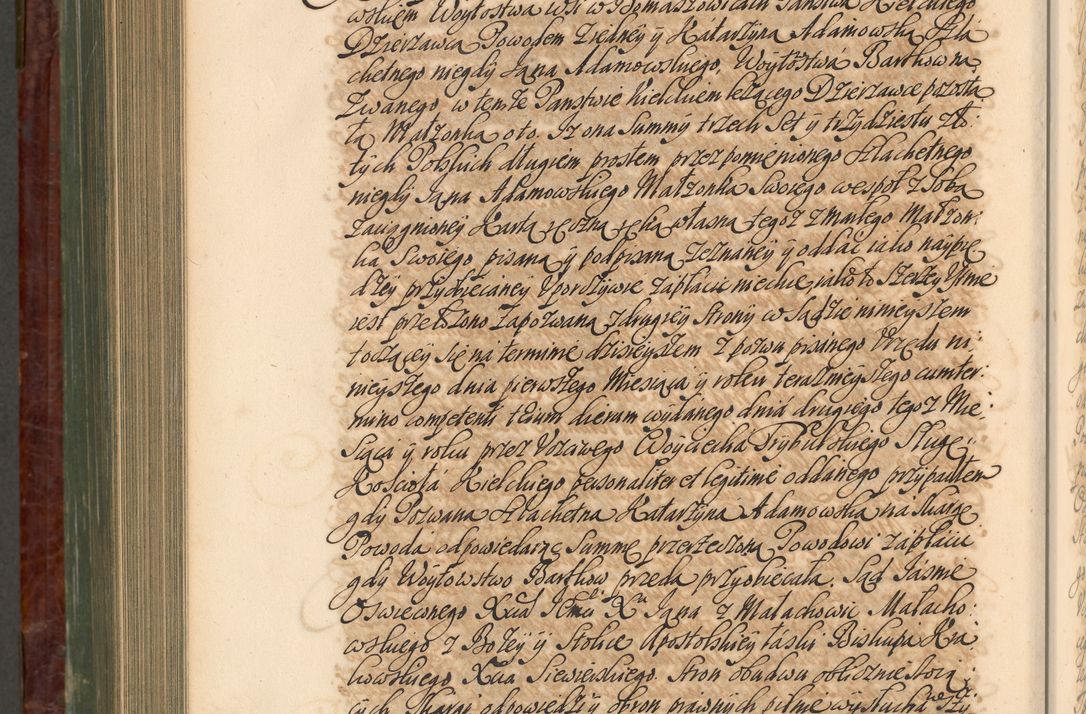 wskiem Woytostwa wsi w Domaszowicach Panstwa Kielckiego
Dzierzawcą Powodem z iedney y Katarzyną Adamowską Szla
chetnego niegdy Jana Adamowskiego, Woytostwá Barthow na
zwanego, w temże Panstwie Kielckiem leżącego Dzierzawce pozosta
łą Małzonką o to. Iz ona Summy trzech set y trzydziestu zło:
tych Polskich długiem prostem przez pomienionego Szlachetnego
niegdy Jana Adamowskiego Małzonka Swoiego wespoł z Sobą
zaciągnioney Kartą ręczną ręką własną tegoż zmarłego Małzon:
ka Swoiego pisaną y podpisaną zeznaney y oddać iako nayprę
dzey przyobiecaney Uporczywie zapłacić niechce, iako to szerzey Urme
iest przełożono zapozwaną z drugiey strony w Sądzie ninieyszem
toczącey się na terminie dzisieyszem z pozwu pisánego Urzędu ni:
nieyszego dnia pierwszego Miesiąca y roku teraznieyszego cum ter:
mino competenti trium dierum wydanego dniá drugiego tegoz Mie
siąca y roku przez Uczciwego Woyciecha Trybulskiego Sługę
Kościoła Kielckiego personaliter et legitime oddanego przypadłem
gdy Pozwana Szlachetna Katarzyna Adamowska na skargę
Powoda odpowiedaiąc Summę przerzeczoną Powodowi zapłacić
gdy Woytowstwo Barthow przeda przyobiecała. Sąd Jásnie
Oswieconego Xcia Jmci X. Jana z Małachowic Małacho:
wskiego z Bożey y Stolice Apostolskiey łaski Biskupa Kra
kowskiego Xcia Siewierskiego. Stron obudwu oblicznie stoią
cych Skargi odpowiedzi y obron prawnych pilnie wysłuchawszy